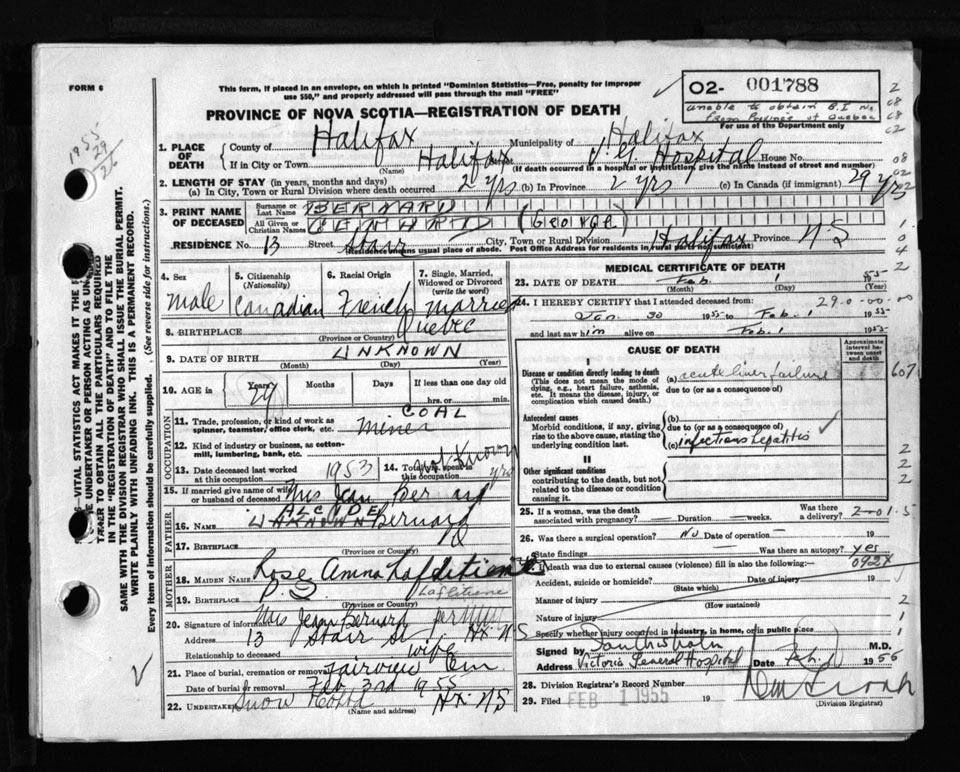 FORM 6
This form, if placed in an envelope, on which is printed "Dominion Statistics—Free, penalty for improper
use $50," and properly addressed will pass through the mail "FREE"
PROVINCE OF NOVA SCOTIA—REGISTRATION OF DEATH
O2- 001788
Unable to obtain B.I. No
from Province of Quebec
For use of the Department only
1955
29
26
1. PLACE OF DEATH
County of Halifax Municipality of Halifax
If in City or Town Halifax V. G. Hospital House No.
(Name) (If death occurred in a hospital or institution, give the name instead of street and number)
2. LENGTH OF STAY (in years, months and days)
(a) In City, Town or Rural Division where death occurred 2 yrs (b) In Province 2 yrs (c) In Canada (if immigrant) 29 yrs
3. PRINT NAME OF DECEASED
Surname or Last Name BERNARD
All Given or Christian Names (George)
RESIDENCE No. 13 Street Stair City, Town or Rural Division Halifax Province N.S
Residence means usual place of abode. Post Office Address for residents in rural parts sufficient
4. Sex Male
5. Citizenship (Nationality) Canadian
6. Racial Origin French
7. Single, Married, Widowed or Divorced (write the word) Married
8. BIRTHPLACE Quebec
(Province or Country)
9. DATE OF BIRTH UNKNOWN
(Month) (Day) (Year)
10. AGE in Years 29 Months Days If less than one day old
hrs. or min.
OCCUPATION
11. Trade, profession, or kind of work as spinner, teamster, office clerk, etc. COAL Miner
12. Kind of industry or business, as cotton-mill, lumbering, bank, etc.
13. Date deceased last worked at this occupation 1953
14. Total yrs. spent in this occupation not known yrs
15. If married give name of wife or husband of deceased Mrs Jean Bernard
FATHER
16. NAME ALCIDE UNKNOWN Bernard
17. BIRTHPLACE
(Province or Country)
MOTHER
18. MAIDEN NAME Rose Amma
19. BIRTHPLACE P.Q.
(Province or Country)
20. Signature of informant Mrs Jean Bernard
Address 13 Stair St Hx. N S
Relationship to deceased wife
21. Place of burial, cremation or removal Fairview Cem
Date of burial or removal Feb 3rd 1955
22. Undertaker Snow Hx. NS
MEDICAL CERTIFICATE OF DEATH
23. DATE OF DEATH Feb. 1 1955
(Month) (Day)
24. I HEREBY CERTIFY that I attended deceased from: 29.0-00-00
Jan. 30 1955 to Feb. 1 1955
and last saw him alive on Feb. 1 1955
CAUSE OF DEATH
Approximate interval between onset and death
Disease or condition directly leading to death (a) acute liver failure
(This does not mean the mode of dying, e.g., heart failure, asthenia, etc. It means the disease, injury, or complication which caused death.)
due to (or as a consequence of)
Antecedent causes (b)
Morbid conditions, if any, giving rise to the above cause, stating the underlying condition last.
due to (or as a consequence of)
(c) infectious hepatitis
II
Other significant conditions contributing to the death, but not related to the disease or condition causing it.
25. If a woman, was the death associated with pregnancy? — Duration — weeks. Was there a delivery? 2-01-5
26. Was there a surgical operation? No Date of operation —
State findings — Was there an autopsy? yes
092X
27. If death was due to external causes (violence) fill in also the following:
Accident, suicide or homicide? Date of injury 19
(State which)
Manner of injury
(How sustained)
Nature of injury
Specify whether injury occurred in industry, in home, or in public place
Signed by M.D.
Address Victoria General Hospital Date Feb. 1955
28. Division Registrar's Record Number
29. Filed FEB 1 1955 19
(Division Registrar)
VITAL STATISTICS ACT MAKES IT THE
UNDERTAKER OR PERSON ACTING AS
TAKER TO OBTAIN ALL THE PARTICULARS REQUIRED
IN THE "REGISTRATION OF DEATH" AND TO FILE THE
SAME WITH THE DIVISION REGISTRAR WHO SHALL ISSUE THE BURIAL PERMIT.
WRITE PLAINLY WITH UNFADING INK. THIS IS A PERMANENT RECORD.
Every item of information should be carefully supplied. (See reverse side for instructions.)